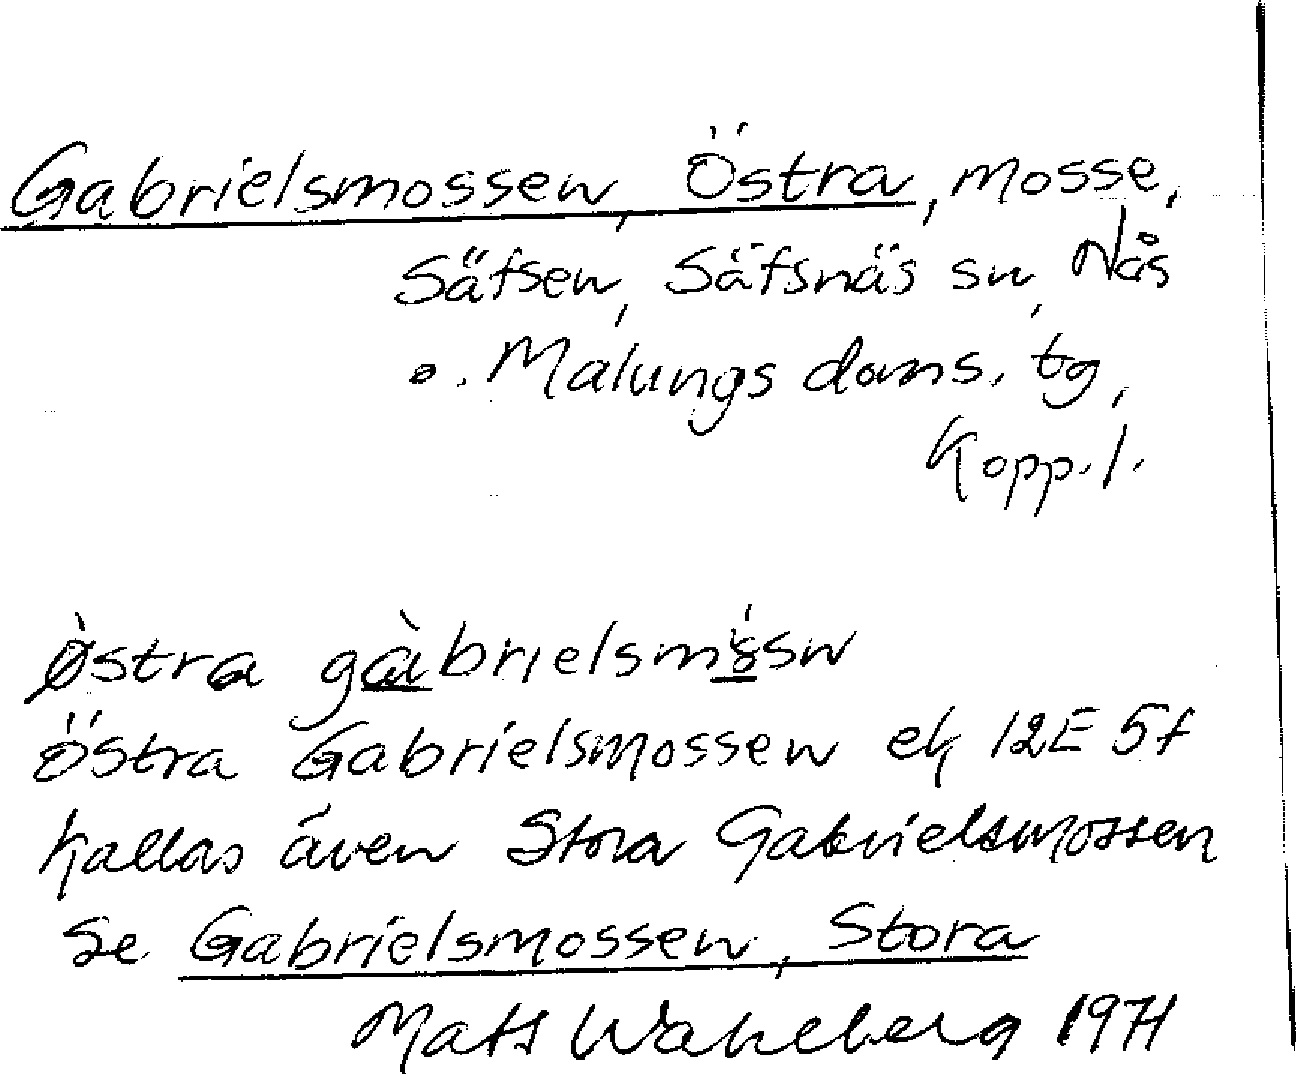 Gabrielsmossen, Östra, mosse,
Säfsen, Säfsnäs sn, Nås
o. Malungs doms. tg,
Kopp. l.
ø̀stra gàbrielsmó̤sn
Östra Gabrielsmossen ek 12E 5f
Kallas även Stora Gabrielsmossen
Se Gabrielsmossen, Stora
Mats Wahlberg 1971